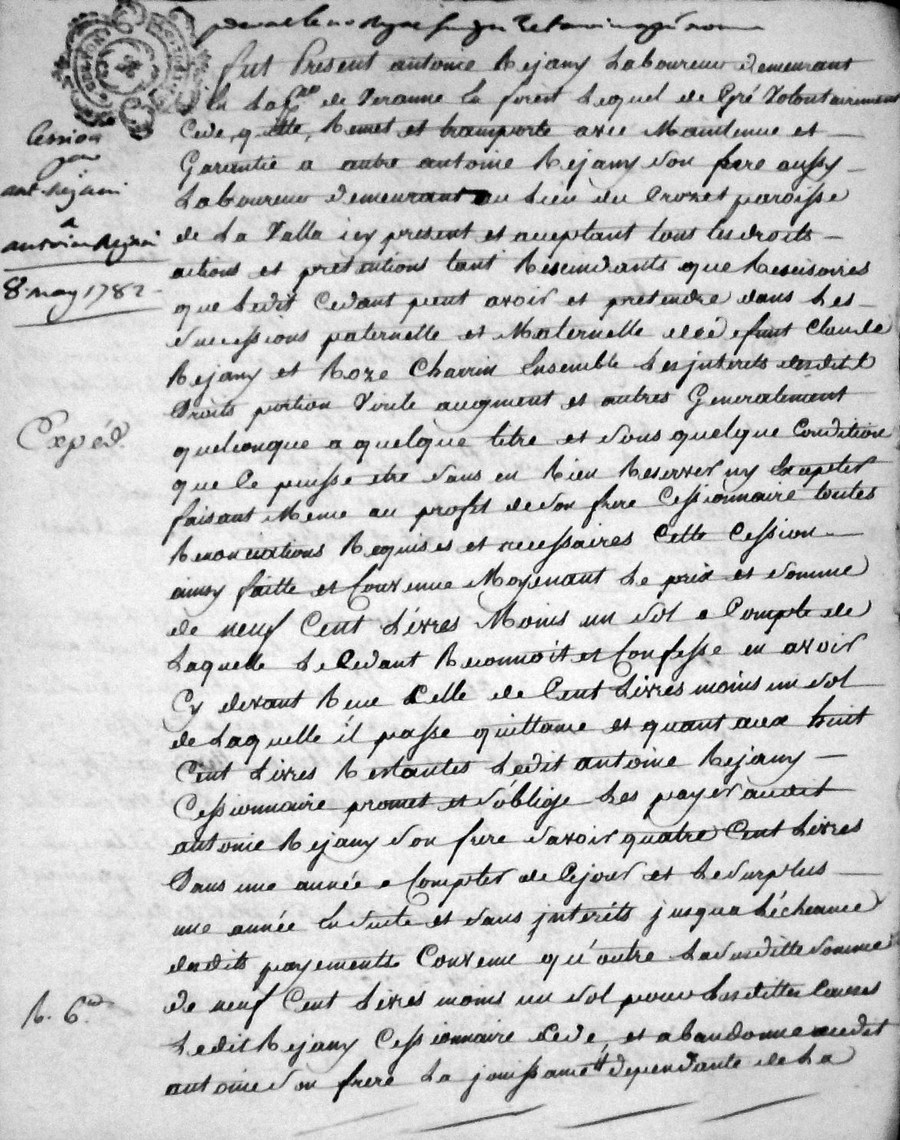 pardevant le no Royal
fut Present antoine Rejany Laboureur Demeurant
En La de Veranne En forest Lequel de Gré Volontairement
Cede, quitte, Remet et transporte avec Maintenue et
Garantie a autre antoine Rejany son frere aussy
Laboureur Demeurant au Lieu du Crozet paroisse
de La Valla icy present et acceptant tous les droits
actions et pretentions tant Rescindants que Rescisoires
que Ledit Cedant peut avoir et pretendre dans Les
successions paternelle et Maternelle de funt Claude
Rejany et Roze Charrin Ensemble Les interets desdit
Droits portion Virile augment et autres Generalement
quelconque a quelque titre et sous quelque Condition
que Ce puisse etre sans en Rien Reserver ny Excepter
faisant Meme au profit de son frere Cessionnaire toutes
Renonciations Requises et necessaires Cette Cession
ainsy faitte et Convenue Moyenant Le prix et somme
de neuf Cent Livres Moins un sol a Compte de
Laquelle Le Cedant Reconnoit et Confesse en avoir
Cy devant Recu Celle de Cent Livres moins un sol
de Laquelle il passe quittance et quant aux huit
Cent Livres Restantes Ledit antoine Rejany
Cessionnaire promet et s'oblige Les payer audit
antoine Rejany son frere savoir quatre Cent Livres
Dans une année a Compter de Cejour et Le surplus
une année En suite et sans interêts jusqua L'écheance
desdits payements Convenu qu'outre La susditte somme
de neuf Cent Livres moins un sol pour Les dittes Causes
Ledit Rejany Cessionnaire Cede, et abandonne audit
antoine son frere La jouissance dependante de La
Cession
par
ant. Rejani
a
antoine Rejani
8 may 1782
Expéd.
R. 6